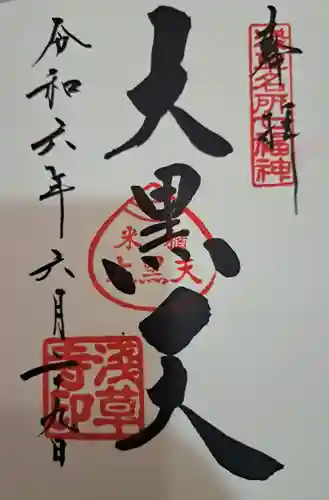 奉拝
浅草名所七福神
大黒天
米櫃
大黒天
令和六年六月二十九日
浅草
寺印